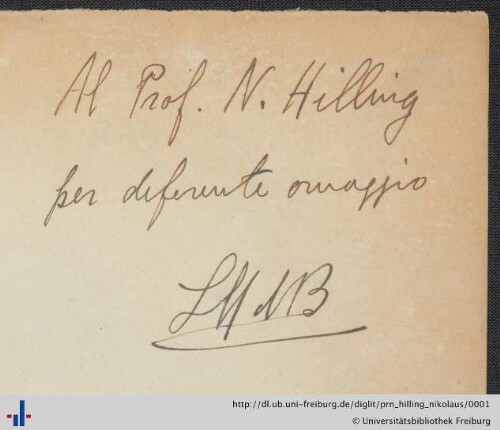 Al Prof. N. Hilling
per deferente omaggio
http://dl.ub.uni-freiburg.de/diglit/prn_hilling_nikolaus/0001
© Universitätsbibliothek Freiburg